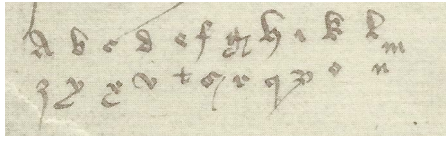 A b c d e f g h i k l
m
z y x v t s r q p o n